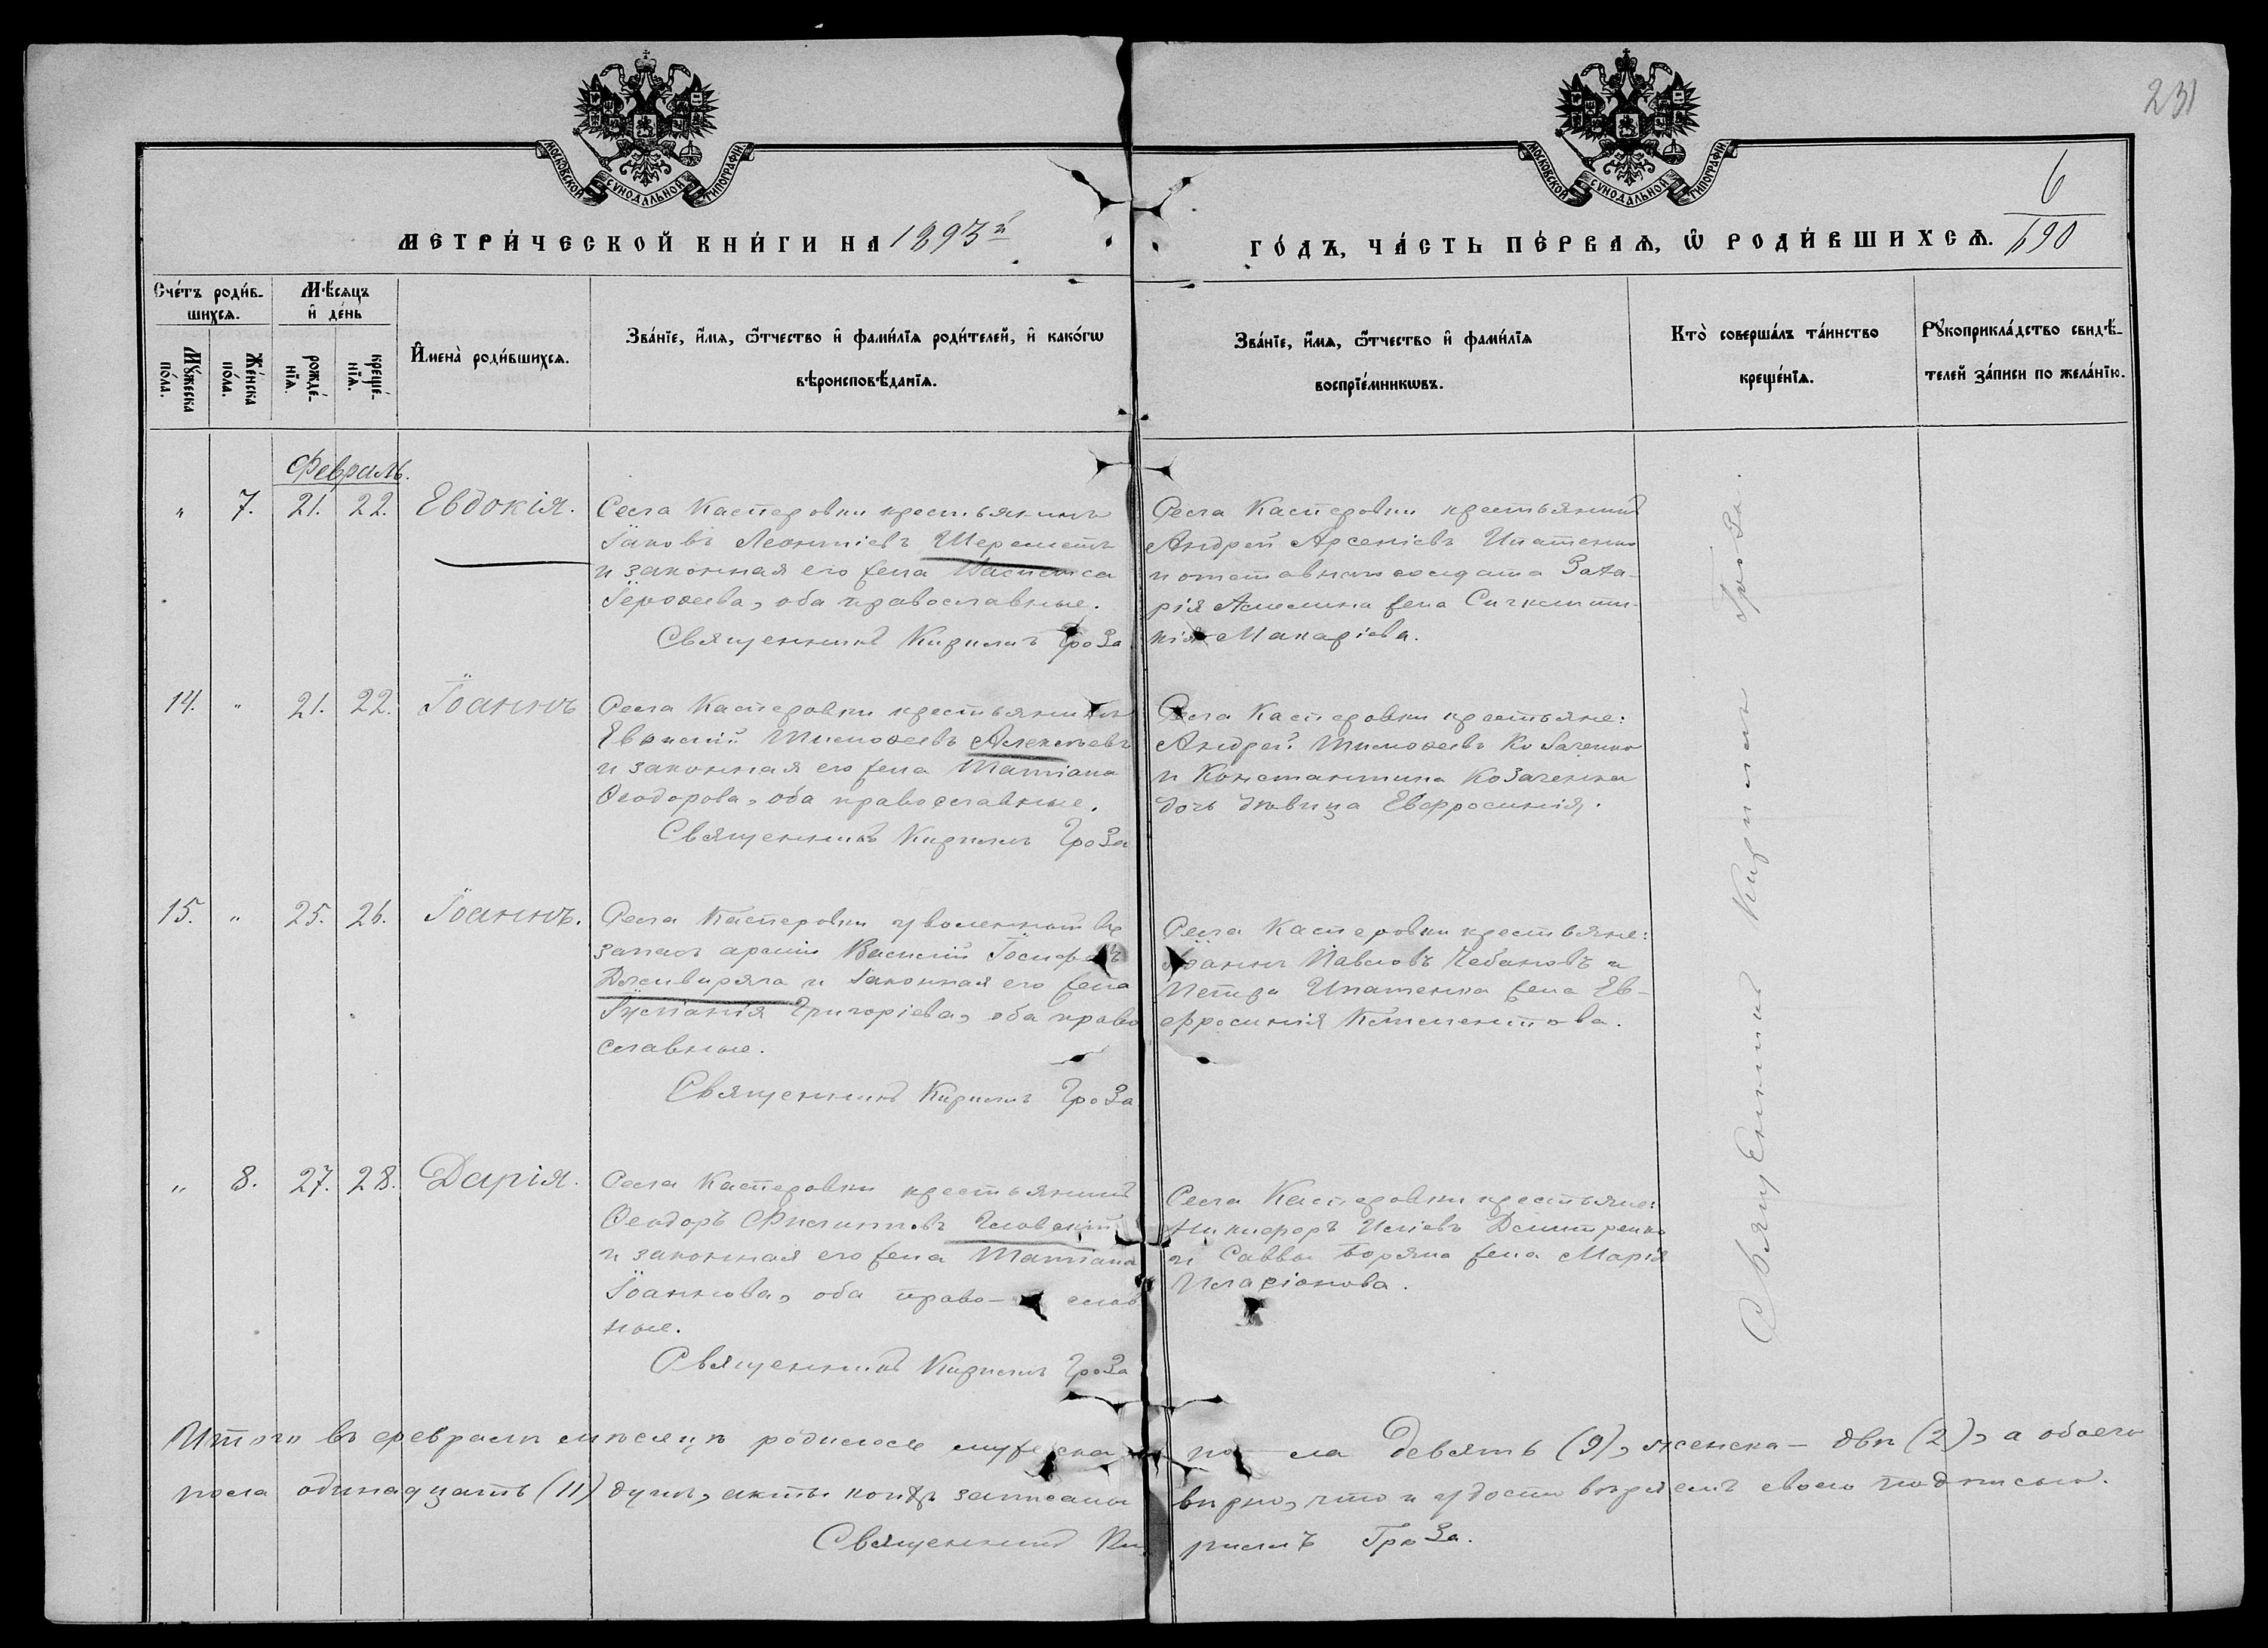 231
МОСКОВСКОЙ СУНОДАЛЬНОЙ ТИПОГРАФІИ
МОСКОВСКОЙ СУНОДАЛЬНОЙ ТИПОГРАФІИ
6
190
МЕТРИ́ЧЕСКОЙ КНИ́ГИ НА 1893й
ГО́ДЪ, ЧА́СТЬ ПЕ́РВАѦ, Ѡ РОДИ́ВШИХСѦ.
Сче́тъ роди́в-
шихсѧ.
Мꙋ́жеска
по́ла.
Же́нска
по́ла.
Мѣ́сѧцъ
и҆ де́нь
рожде́-
нїѧ.
креще́-
нїѧ.
И҆мена̀ роди́вшихсѧ.
Зва́нїе, и҆́мѧ, ѻ҆́тчество и҆ фами́лїѧ роди́телей, и҆ како́гѡ
вѣроисповѣ́данїѧ.
Зва́нїе, и҆́мѧ, ѻ҆́тчество и҆ фами́лїѧ
воспрїе́мникѡвъ.
Кто̀ соверша́лъ та́инство
креще́нїѧ.
Рꙋкоприкла́дство свидѣ́-
телей за́писи по жела́нїю.
Февраль.
" 7. 21. 22. Евдокія.
Села Касперовки крестьянинъ
Іаковъ Леонтіевъ Шереметъ
и законная его жена Василиса
Іероѳеева, оба православные.
Священникъ Кириллъ Гроза
Села Касперовки крестьянинъ
Андрей Арсеніевъ Ипатенко
и отставнаго солдата Заха-
рія жена
Макаріева.
14. " 21. 22. Іоаннъ
Села Касперовки крестьянинъ
Тимоѳеевъ Алексѣевъ
и законная его жена Татіана
Ѳеодорова, оба православные.
Священникъ Кириллъ Гроза
Села Касперовки крестьяне:
Андрей Тимоѳеевъ Козаченко
и Константина Козаченка
дочь дѣвица Евфросинія.
15. " 25. 26. Іоаннъ.
Села Касперовки уволенный въ
запасъ арміи Василій Іосифовъ
и законная его жена
Григоріева, оба право
славные.
Священникъ Кириллъ Гроза
Села Касперовки крестьяне:
Іоаннъ Павловъ Чебановъ и
Петра Ипатенка жена Ев-
фросинія Климентова.
" 8. 27. 28. Дарія.
Села Касперовки крестьянинъ
Ѳеодоръ Филипповъ
и законная его жена Татіана
Іоаннова, оба право- слав
ные.
Священникъ Кириллъ Гроза
Села Касперовки крестьяне:
Никифоръ Иліевъ Дмитренко
и Саввы жена Марія
Иларіонова.
Священникъ Кириллъ Гроза.
Итого въ февралѣ мѣсяцѣ родилось мужеска по ла девять (9), женска – двѣ (2), а обоего
пола одинадцать (11) душъ, акты коихъ записаны вѣрно, что и удостовѣряемъ своею подписью.
Священникъ Ки риллъ Гроза.